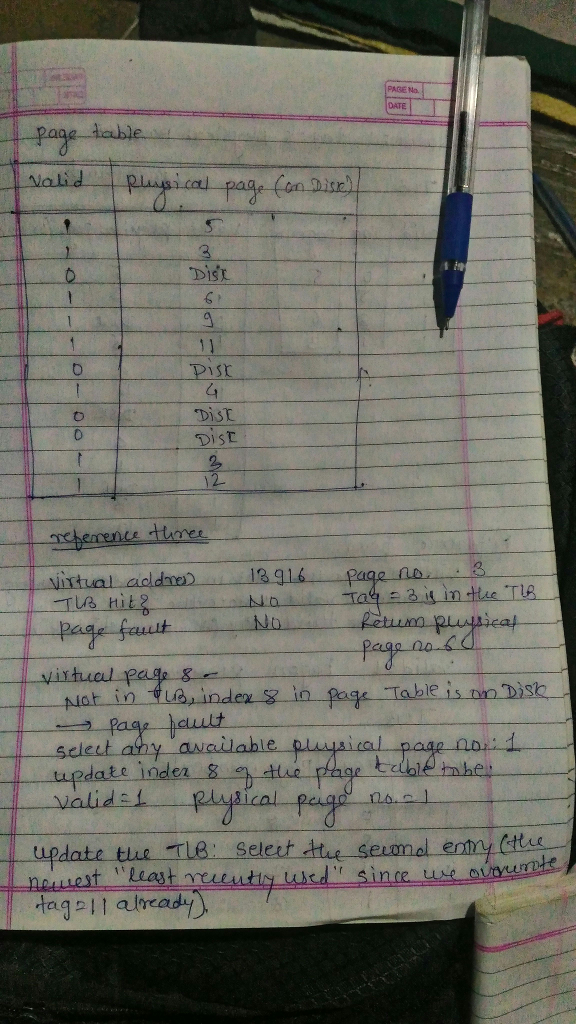 PAGE No.
DATE
page table
Valid physical page (on Disk)
1 5
1 3
0 Disk
1 6
1 9
1 11
0 Disk
1 4
0 Disk
0 Disk
1 3
1 12
reference three
virtual address 13916 page no. 3
TLB Hit? No Tag = 3 is in the TLB
page fault No Return physical
page no. 6
virtual page 8 -
Not in TLB, index 8 in page Table is on Disk
→ page fault
select any available physical page no.: 1
update index 8 of the page table to be:
valid=1 physical page no. = 1
update the TLB: select the second entry (the
newest "least recently used" since we overwrote
tag=11 already).